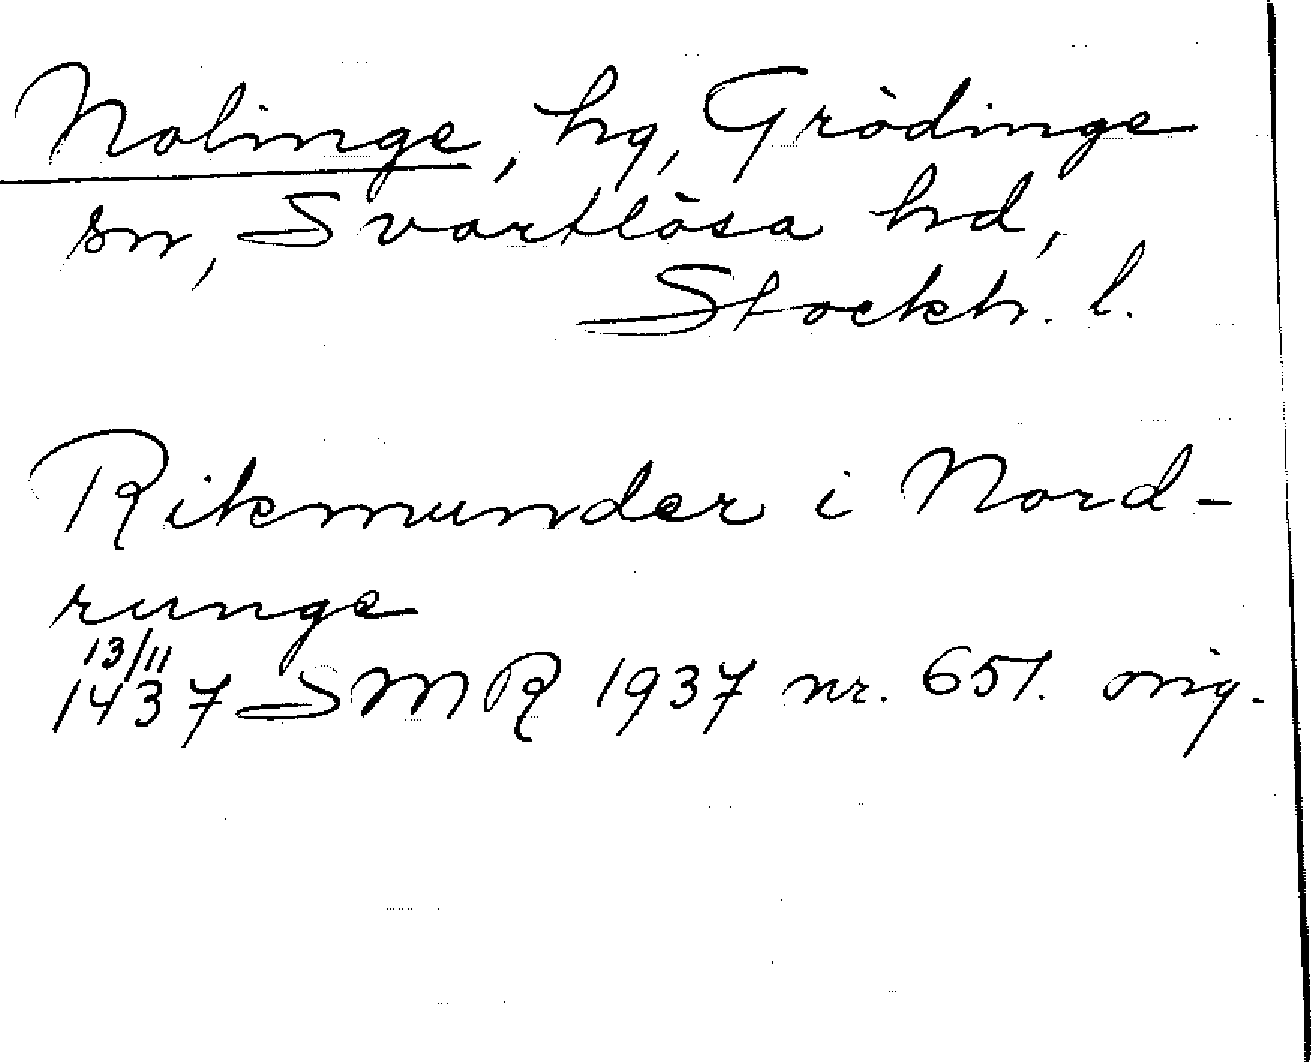 Nolinge, hg, Grödinge
sn, Svartlösa hd,
Stockh. l.
Rikmunder i Nord-
runge
13/11
1437 SMR 1937 nr. 651. orig.